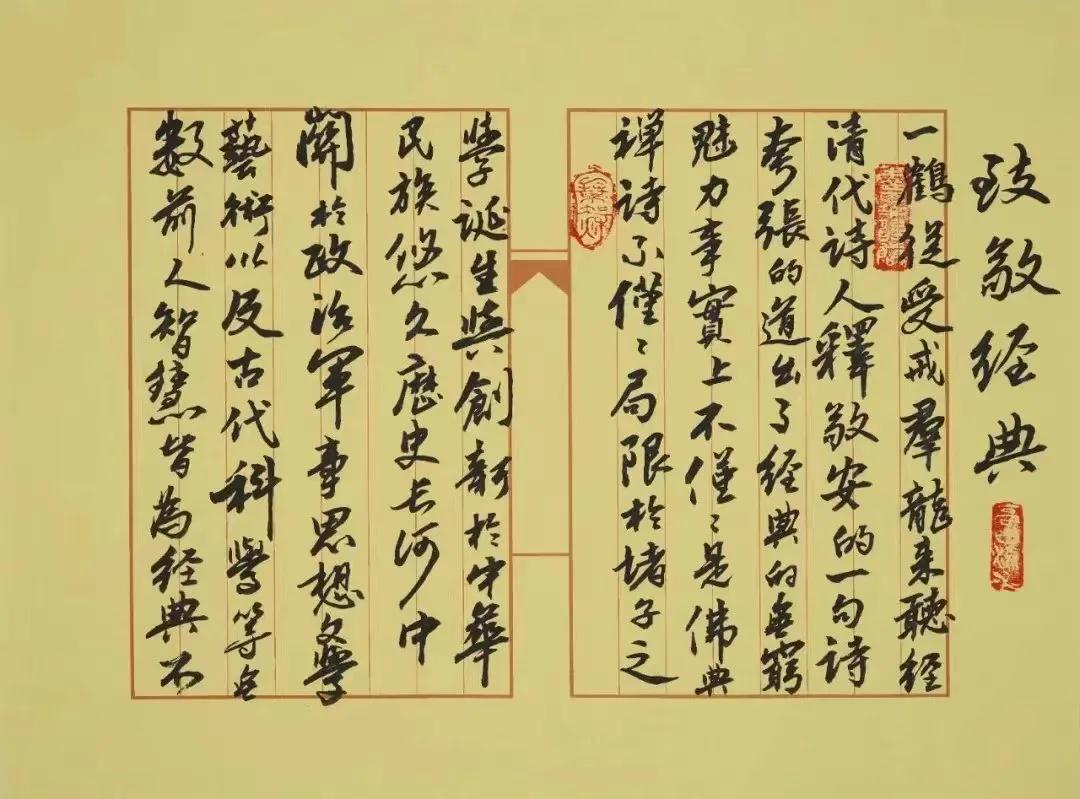 致敬经典
一鶴從受戒羣龍来聽经
清代诗人釋敬安的一句诗
夸張的道出了经典的無窮
魅力事實上不僅〻是佛典
禅诗不僅〻局限於诸子之
學誕生與創新於中華
民族悠久歷史长河中
關於政治軍事思想文學
藝術以及古代科學等無
數前人智慧皆為经典不